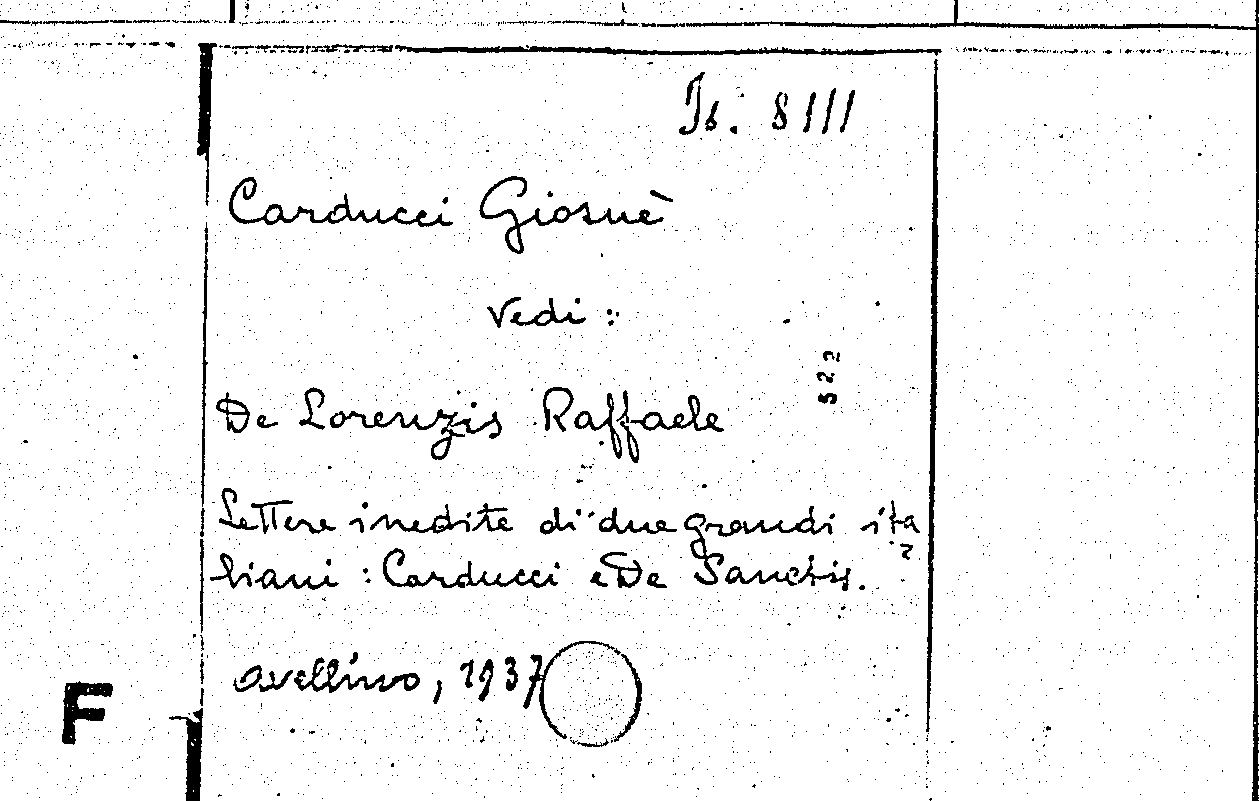 Is. 8111
Carducci Giosuè
Vedi :
522
De Lorenzis Raffaele
Lettere inedite di due grandi ita
liani : Carducci e De Sanctis.
Avellino, 1937
F